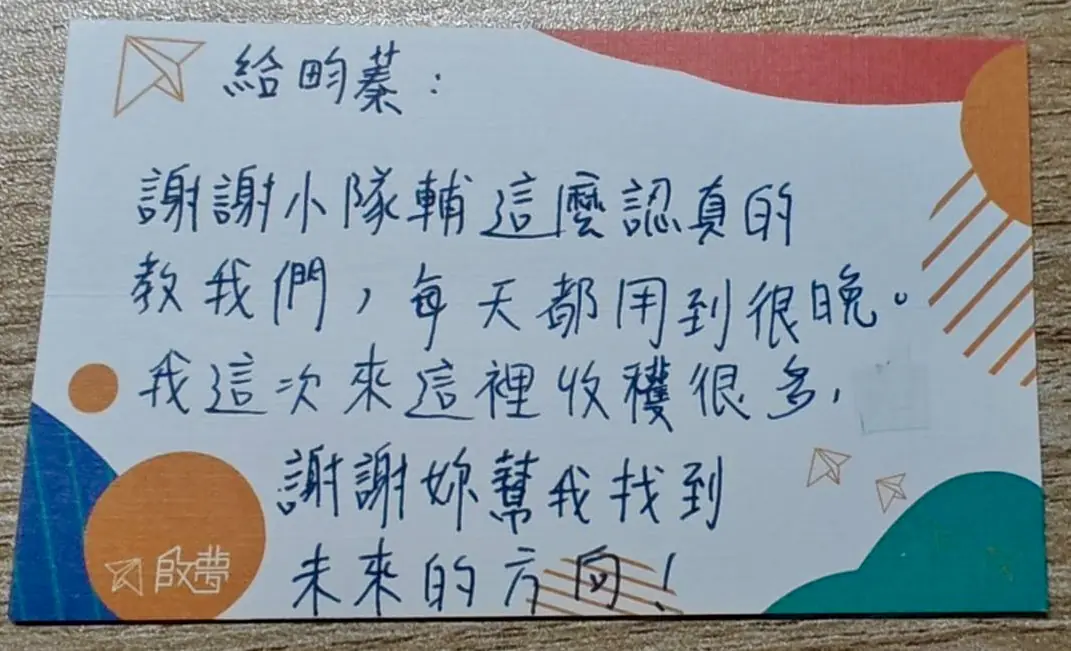 給畇蓁：
謝謝小隊輔這麼認真的
教我們，每天都用到很晚。
我這次來這裡收穫很多，
謝謝妳幫我找到
未來的方向！
啟夢